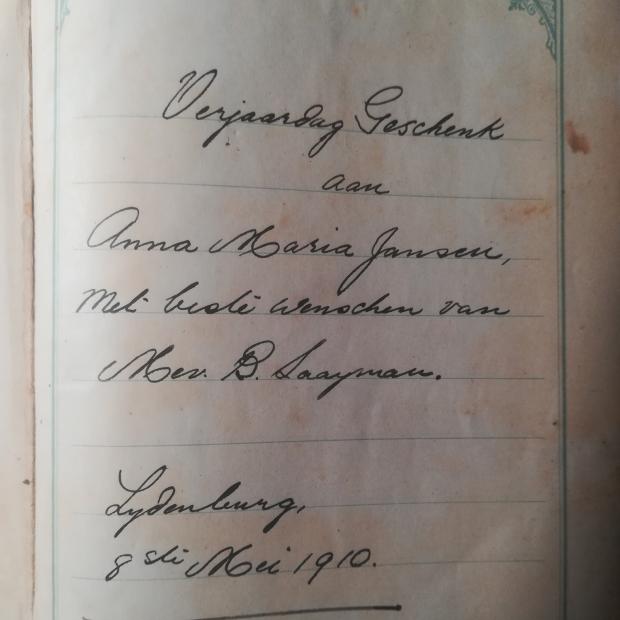 Verjaardag Geschenk
aan
Anna Maria Jansen,
Met beste wenschen van
Mev. B. Saayman.
Lydenburg,
8ste Mei 1910.